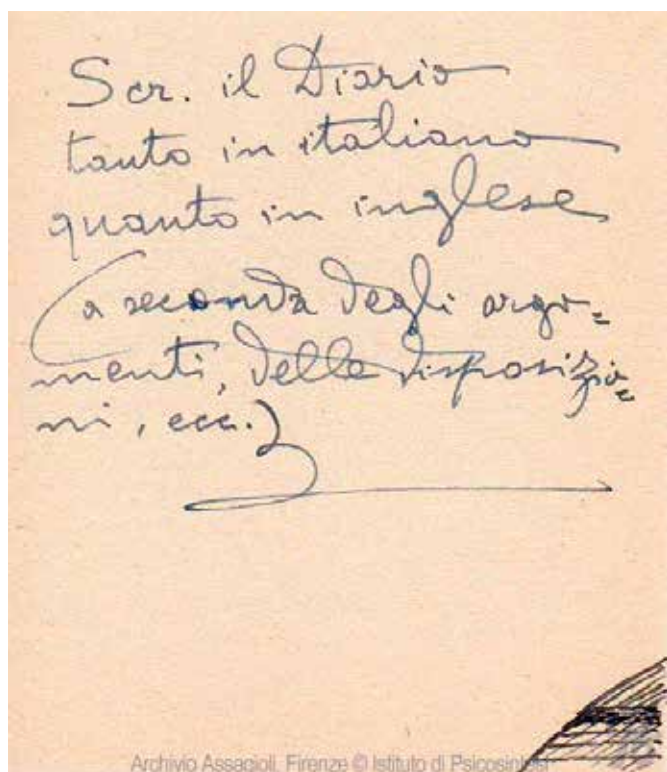 Scr. il Diario
tanto in italiano
quanto in inglese
(a seconda degli argo=
menti, delle disposizio=
ni, ecc.)
Archivio Assagioli, Firenze © Istituto di Psicosintesi